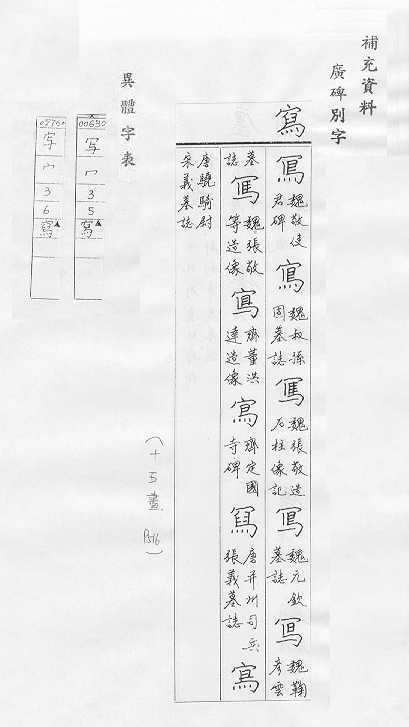 補充資料
廣碑別字
寫
魏敬使君碑 寫 魏叔孫固墓誌 魏張敬造石柱像記 魏元欽墓誌 魏鞠彥雲
墓誌 魏張敬等造像 齊董洪達造像 寫 齊定國寺碑 唐并州司兵張義墓誌 寫
唐驍騎尉宋義墓誌
(十五畫 P.516)
異體字表
00690 写 冖 3 5 寫▲
冖 3 6 寫▲